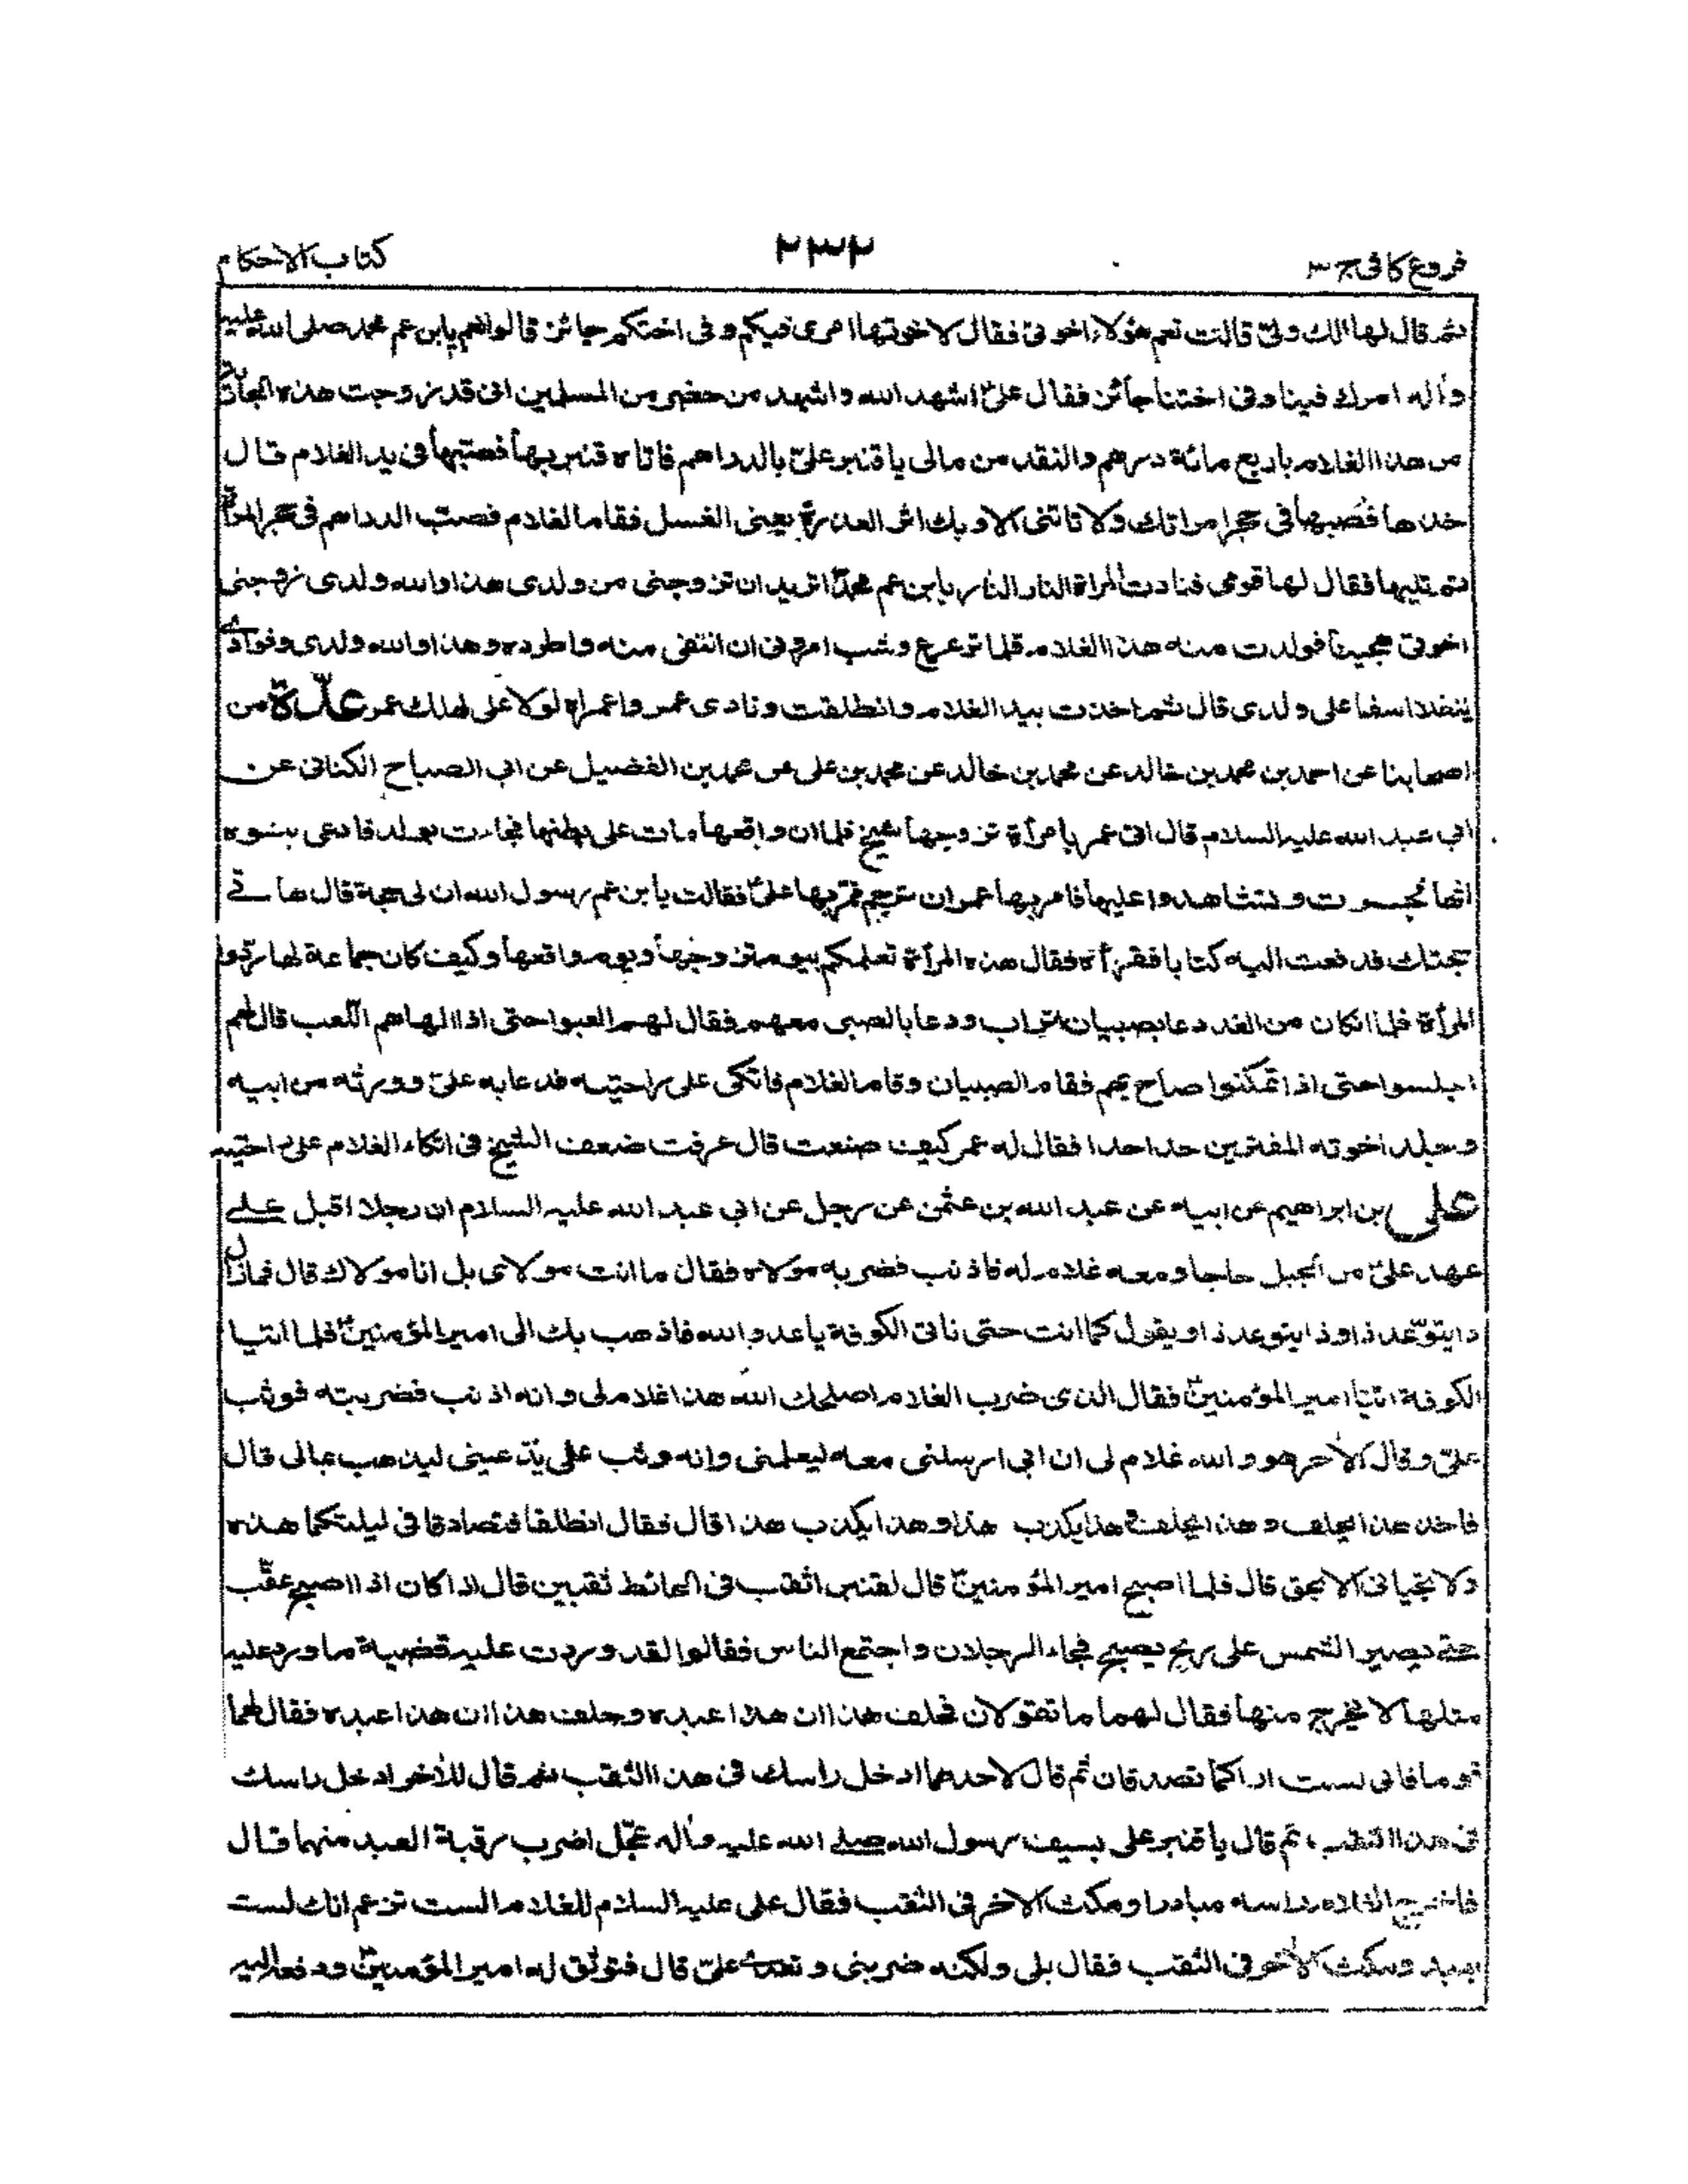 فروع کافی ج ۳
۲۳۲
کتاب الاحکام
ثم قال لها الك ولىّ قالت نعم هؤلاء اخوتى فقال لاخوتها امرى فيكم وفى اختكم جائز قالوا نعم يا بن عم محمد صلى الله عليه
واٰله امرك فينا وفى اختنا جائز فقال علىّ اشهد الله واشهد من حضر من المسلمين انى قد زوجت هذه الجارية
من هذا الغلام باربع مائة درهم والنقد من مالى يا قنبر علىّ بالدراهم فاتاه قنبر بها فصبّها فى يد الغلام قال
خذها فصبها فى حجر امراتك ولا تاتنى الا وبك اثر العرس يعنى الغسل فقام الغلام فصبّ الدراهم فى حجر المرأة
ثم تلبها فقال لها قومى فنادت المراة النار النار يا بن عم محمدؐ اتريد ان تزوجنى من ولدى هذا والله ولدى زوجنى
اخوتى هجينا فولدت منه هذا الغلام فلما ترعرع وشب امرونى ان انتفى منه واطرده وهذا والله ولدى وفوادى
يتغلا اسفا على ولدى قال ثم اخذت بيد الغلام وانطلقت ونادى عمر واعمراه لولا على لهلك عمر عدّة من
اصحابنا عن احمد بن محمد بن خالد عن محمد بن على عن محمد بن الفضيل عن ابى الصباح الكنانى عن
ابى عبد الله عليه السلام قال اتى عمر بامرأة تزوجها شيخ فلما ان واقعها مات على بطنها فجاءت بولد فادعى بنوه
انها فجرت وتشاهدوا عليها فامر بها عمر ان ترجم فمرّ بها علىّ فقالت يا بن عم رسول الله ان لى حجة قال هاتى
حجتك فدفعت اليه كتابا فقرأه فقال هذه المرأة تعلمكم بيوم تزوجها ويوم واقعها وكيف كان جماعه لها ردّوا
المرأة فلما ان كان من الغد دعا بصبيان اتراب ودعا بالصبى معهم فقال لهم العبوا حتى اذا الهاهم اللّعب قال لهم
اجلسوا حتى اذا تمكنوا صاح بهم فقام الصبيان وقام الغلام فاتكى على راحتيه فدعا به علىّ وورثه من ابيه
وجلد اخوته المفترين حدا حدا فقال له عمر كيف صنعت قال عرفت ضعف الشيخ فى اتكاء الغلام على راحتيه
على بن ابراهيم عن ابيه عن عبد الله بن عثمن عن رجل عن ابى عبد الله عليه السلام ان رجلا اقبل على
عهد علىّ من الجبل حاجا ومعه غلام له فاذنب فضربه مولاه فقال ما انت مولاى بل انا مولاك قال فما زال
ذا يتوّعد ذا وذا يتوعد ذا ويقول كما انت حتى ناتى الكوفة يا عدو الله فاذهب بك الى امير المؤمنينؑ فلما اتيا
الكوفة اتيا امير المؤمنينؑ فقال الذى ضرب الغلام اصلحك الله هذا غلام لى وانه اذنب فضربته فوثب
علىّ وقال الأخر هو والله غلام لى ان ابى ارسلنى معه ليعلمنى وانه وثب علىّ يدّعينى ليذهب بمالى قال
فاخذ هذا يحلف وهذا يحلف وهذا يكذب هذا وهذا يكذب هذا قال فقال انطلقا فتصادقا فى ليلتكما هذه
ولا تجيانى الا بحق قال فلما اصبح امير المؤمنينؑ قال لقنبر اثقب فى الحائط ثقبين قال وكان اذا اصبح عقّب
حتى تصير الشمس على رمح يسبح فجاء الرجلان واجتمع الناس فقالوا لقد وردت عليه قضية ما ورد عليه
مثلها لا يخرج منها فقال لهما ما تقولان فحلف هذا ان هذا عبده وحلف هذا ان هذا عبده فقال لهما
قوما فانى لست اراكما تصدقان ثم قال لاحدهما ادخل راسك فى هذا الثقب ثم قال للأخر ادخل راسك
فى هذا الثقب ثم قال يا قنبر على بسيف رسول الله صلى الله عليه واٰله عجّل اضرب رقبة العبد منهما قال
فاخرج الغلام راسه مبادرا ومكث الاخر فى الثقب فقال على عليه السلام للغلام الست تزعم انك لست
بعبد ومكث الأخر فى الثقب فقال بلى ولكنه ضربنى وتعدى علىّ قال فتوثق له امير المؤمنينؑ ودفعه اليه